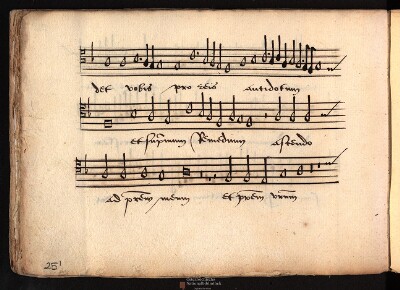 det vobis pro reis antidotum
et supremum Remedium ascendo
ad prem meum et prem vrum
251